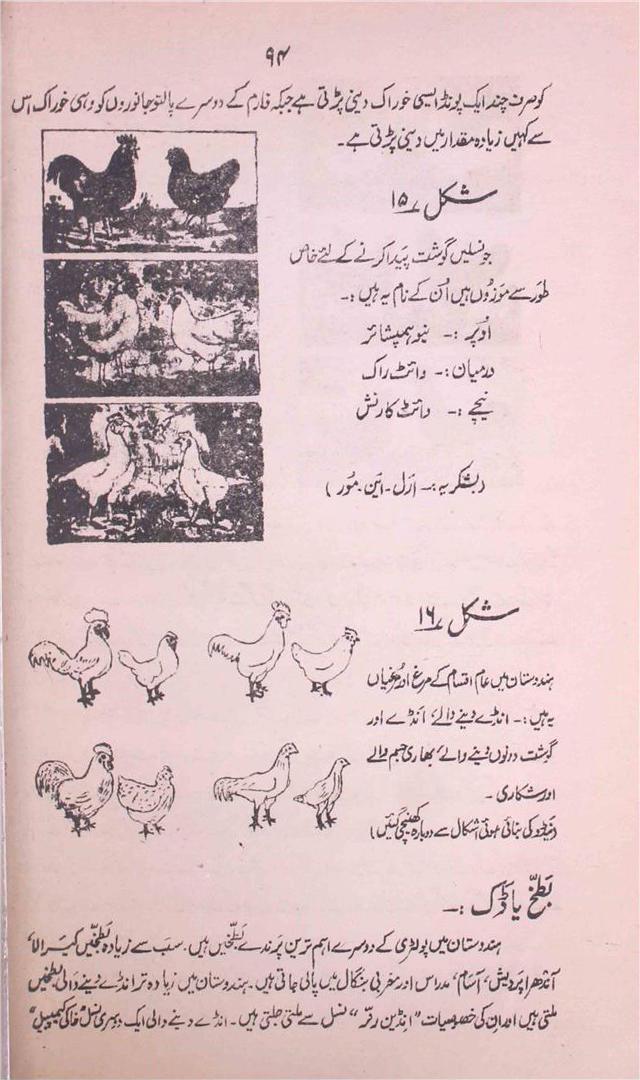 ۹۴
کو صرف چند ایک پونڈ ایسی خوراک دینی پڑتی ہے جبکہ فارم کے دوسرے پالتو جانوروں کو وہی خوراک اس
سے کہیں زیادہ مقدار میں دینی پڑتی ہے۔
شکل ۱۵
جو نسلیں گوشت پیدا کرنے کے لئے خاص
طور سے موزوں ہیں اُن کے نام یہ ہیں :۔
اُوپر :۔ نیو ہمپشائر
درمیان :۔ وائٹ راک
نیچے :۔ وائٹ کارنش
(بشکریہ :۔ اَرل۔ این۔ مُور)
شکل ۱۶
ہندوستان میں عام اقسام کے مرغ اور مُرغیاں
یہ ہیں :۔ انڈے دینے والے، انڈے اور
گوشت دونوں دینے والے، بھاری جسم والے
اور شکاری۔
کی بنائی ہوئی اشکال سے دوبارہ کھینچی گئیں)
بَطخّ یا ڈَک :۔
ہندوستان میں پولٹری کے دوسرے اہم ترین پَرندے بَطخّیں ہیں۔ سب سے زیادہ بَطخّیں کیرالا،
آندھرا پردیش، آسام، مدراس اور مغربی بنگال میں پائی جاتی ہیں۔ ہندوستان میں زیادہ تر انڈے دینے والی بَطخّیں
ملتی ہیں اور ان کی خصوصیات "انڈین رنر" نسل سے ملتی جلتی ہیں۔ انڈے دینے والی ایک دوسری نسل خاکی کیمپبیل"